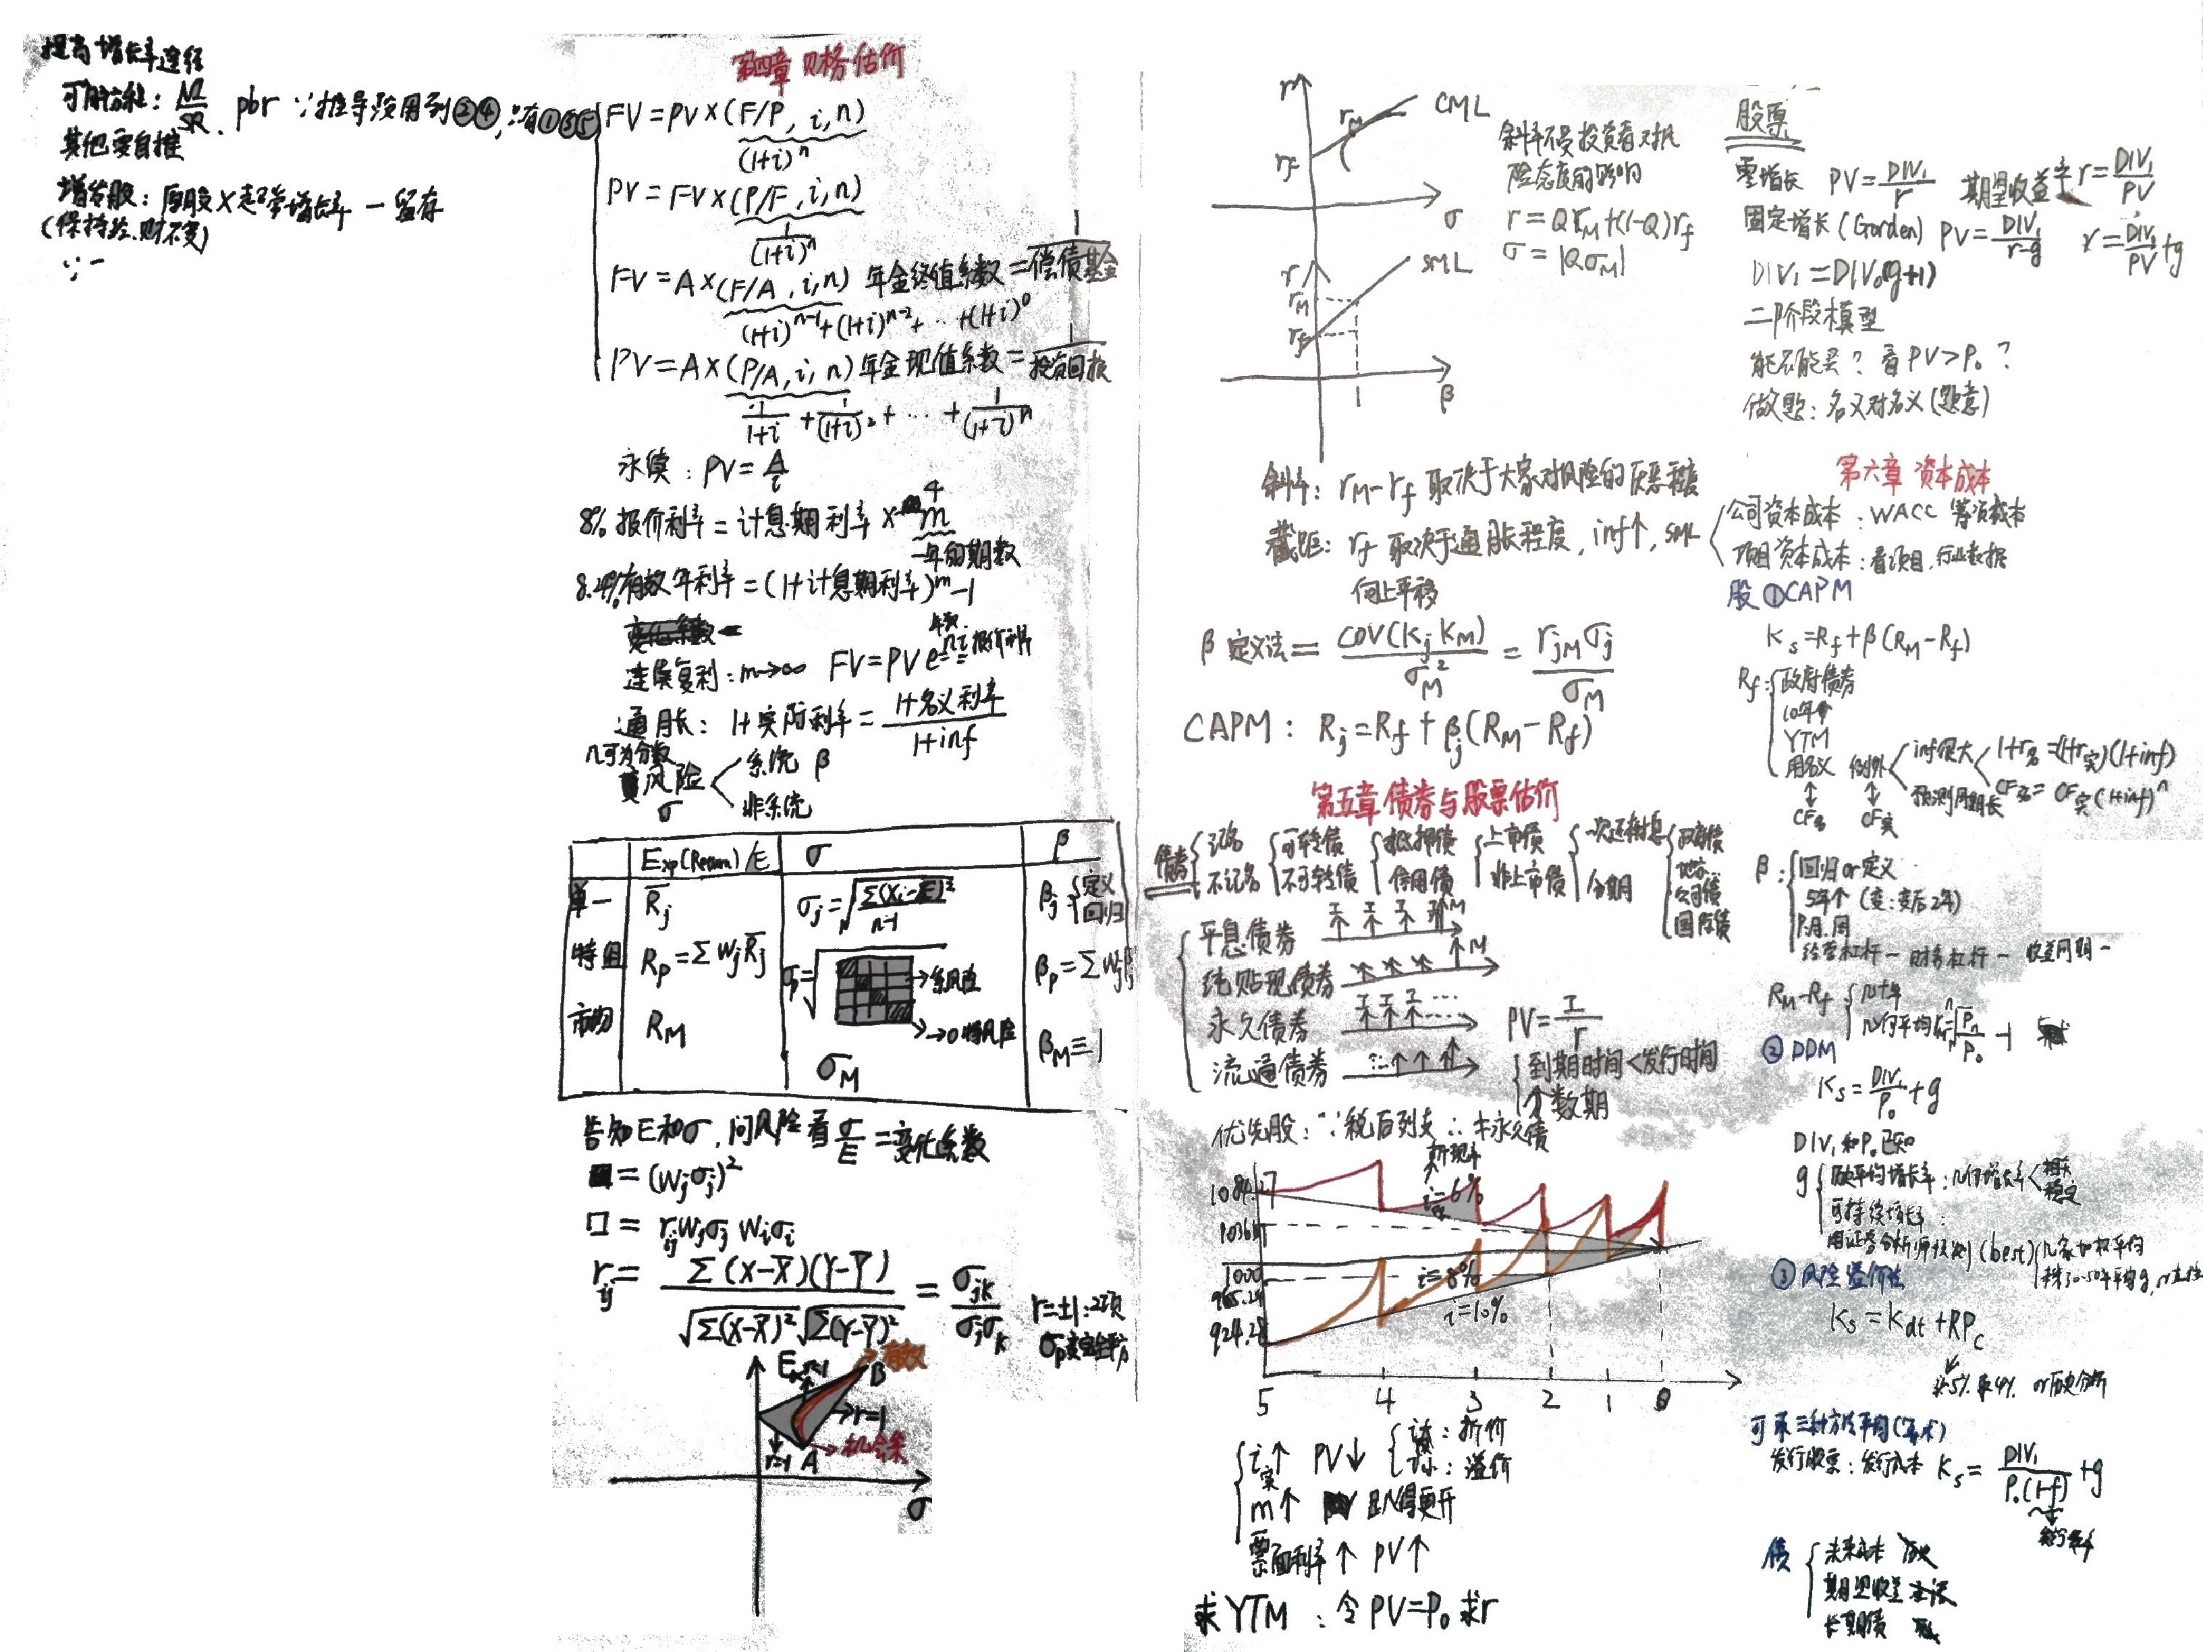 提高增长率途径
可用方程：M/SR、pbr ∵推导没用到②④,∴有①③⑤
其他要自推
增发股：原股×超常增长率－留存
(保持经、财不变)
∵－
第四章 价格估价
FV=PV×(F/P, i, n)
(1+i)^n
PV=FV×(P/F, i, n)
1/(1+i)^n
FV=A×(F/A, i, n) 年金终值系数=1/偿债基金
(1+i)^(n-1)+(1+i)^(n-2)+…+(1+i)^0
PV=A×(P/A, i, n) 年金现值系数=1/投资回收
1/(1+i)+1/(1+i)^2+…+1/(1+i)^n
永续：PV=A/i
8% 报价利率=计息期利率×m 4
一年的期数
8.24% 有效年利率=(1+计息期利率)^m-1
连续复利：m→∞ FV=PV e
年数 报价利率
通胀：1+实际利率=(1+名义利率)/(1+inf)
n可为分数
风险 σ
系统 β
非系统
Exp(Return)/E σ β
单一 R̄j σj=√(Σ(Xi-E)²/(n-1)) βj：定义 回归
组 Rp=ΣWjR̄j σp=√ →系风险 →0 特风险 βp=ΣWjβj
市场 RM σM βM≡1
告知E和σ,问风险看σ/E=变化系数
■=(Wjσj)²
□=rijWjσjWiσi
rij=Σ(X-X̄)(Y-Ȳ)/(√Σ(X-X̄)²√Σ(Y-Ȳ)²)=σjk/(σjσk)
r=±1：2项
E 有效 B
r=1
→机会集
r=-1 A
σ
r CML
rM
rf
σ
斜率不受投资者对风
险态度的影响
r=QrM+(1-Q)rf
σ=|QσM|
r SML
rM
rf
1 β
斜率：rM-rf 取决于大家对风险的厌恶程度
截距：rf 取决于通胀程度, inf↑, SML
向上平移
β 定义法=COV(Kj KM)/σM²=rjMσj/σM
CAPM：Rj=Rf+βj(RM-Rf)
第五章 债券与股票估价
债券
记名 不记名
可转债 不可转债
抵押债 信用债
上市债 非上市债
一次还本付息 分期
政府债 地方 公司债 国际债
平息债券 I I I I M
纯贴现债券 M
永久债券 I I I … PV=I/r
流通债券
到期时间<发行时间
个数期
优先股：∵税后列支 ∴≠永久债
折现率
1084.27 i=6%
1036.67
1000 i=8%
965.24
924.28 i=10%
5 4 3 2 1 0
i实↑ PV↓
折价
溢价
m↑
票面利率↑ PV↑
求YTM：令PV=P0求r
股票
零增长 PV=DIV1/r 期望收益率r=DIV1/PV
固定增长(Gorden) PV=DIV1/(r-g) r=DIV1/PV+g
DIV1=DIV0(g+1)
二阶段模型
能不能买？看PV>P0？
做题：名义对名义(题意)
第六章 资本成本
公司资本成本：WACC 筹资成本
项目资本成本：看项目,行业数据
股 ①CAPM
Ks=Rf+β(RM-Rf)
Rf：政府债券
10年
YTM
用名义 例外
inf很大 1+r名=(1+r实)(1+inf)
预测周期长 CF名=CF实(1+inf)^n
CF名 CF实
β：回归or定义
5年↑(变：变后2年)
月.周
经营杠杆－财务杠杆－收益周期－
RM-Rf 几十年
几何平均 Pn/P0 -1
②DDM
Ks=DIV1/P0+g
DIV1和P0已知
g 历史平均增长率：几何增长率
可持续增长率：
用证券分析师预测(best) 几家加权平均
③风险溢价法
Ks=Kdt+RPc
or历史分析
可采三种方法平均
发行股票：发行成本 Ks=DIV1/(P0(1-f))+g
债
未来成本
期望收益
长期债